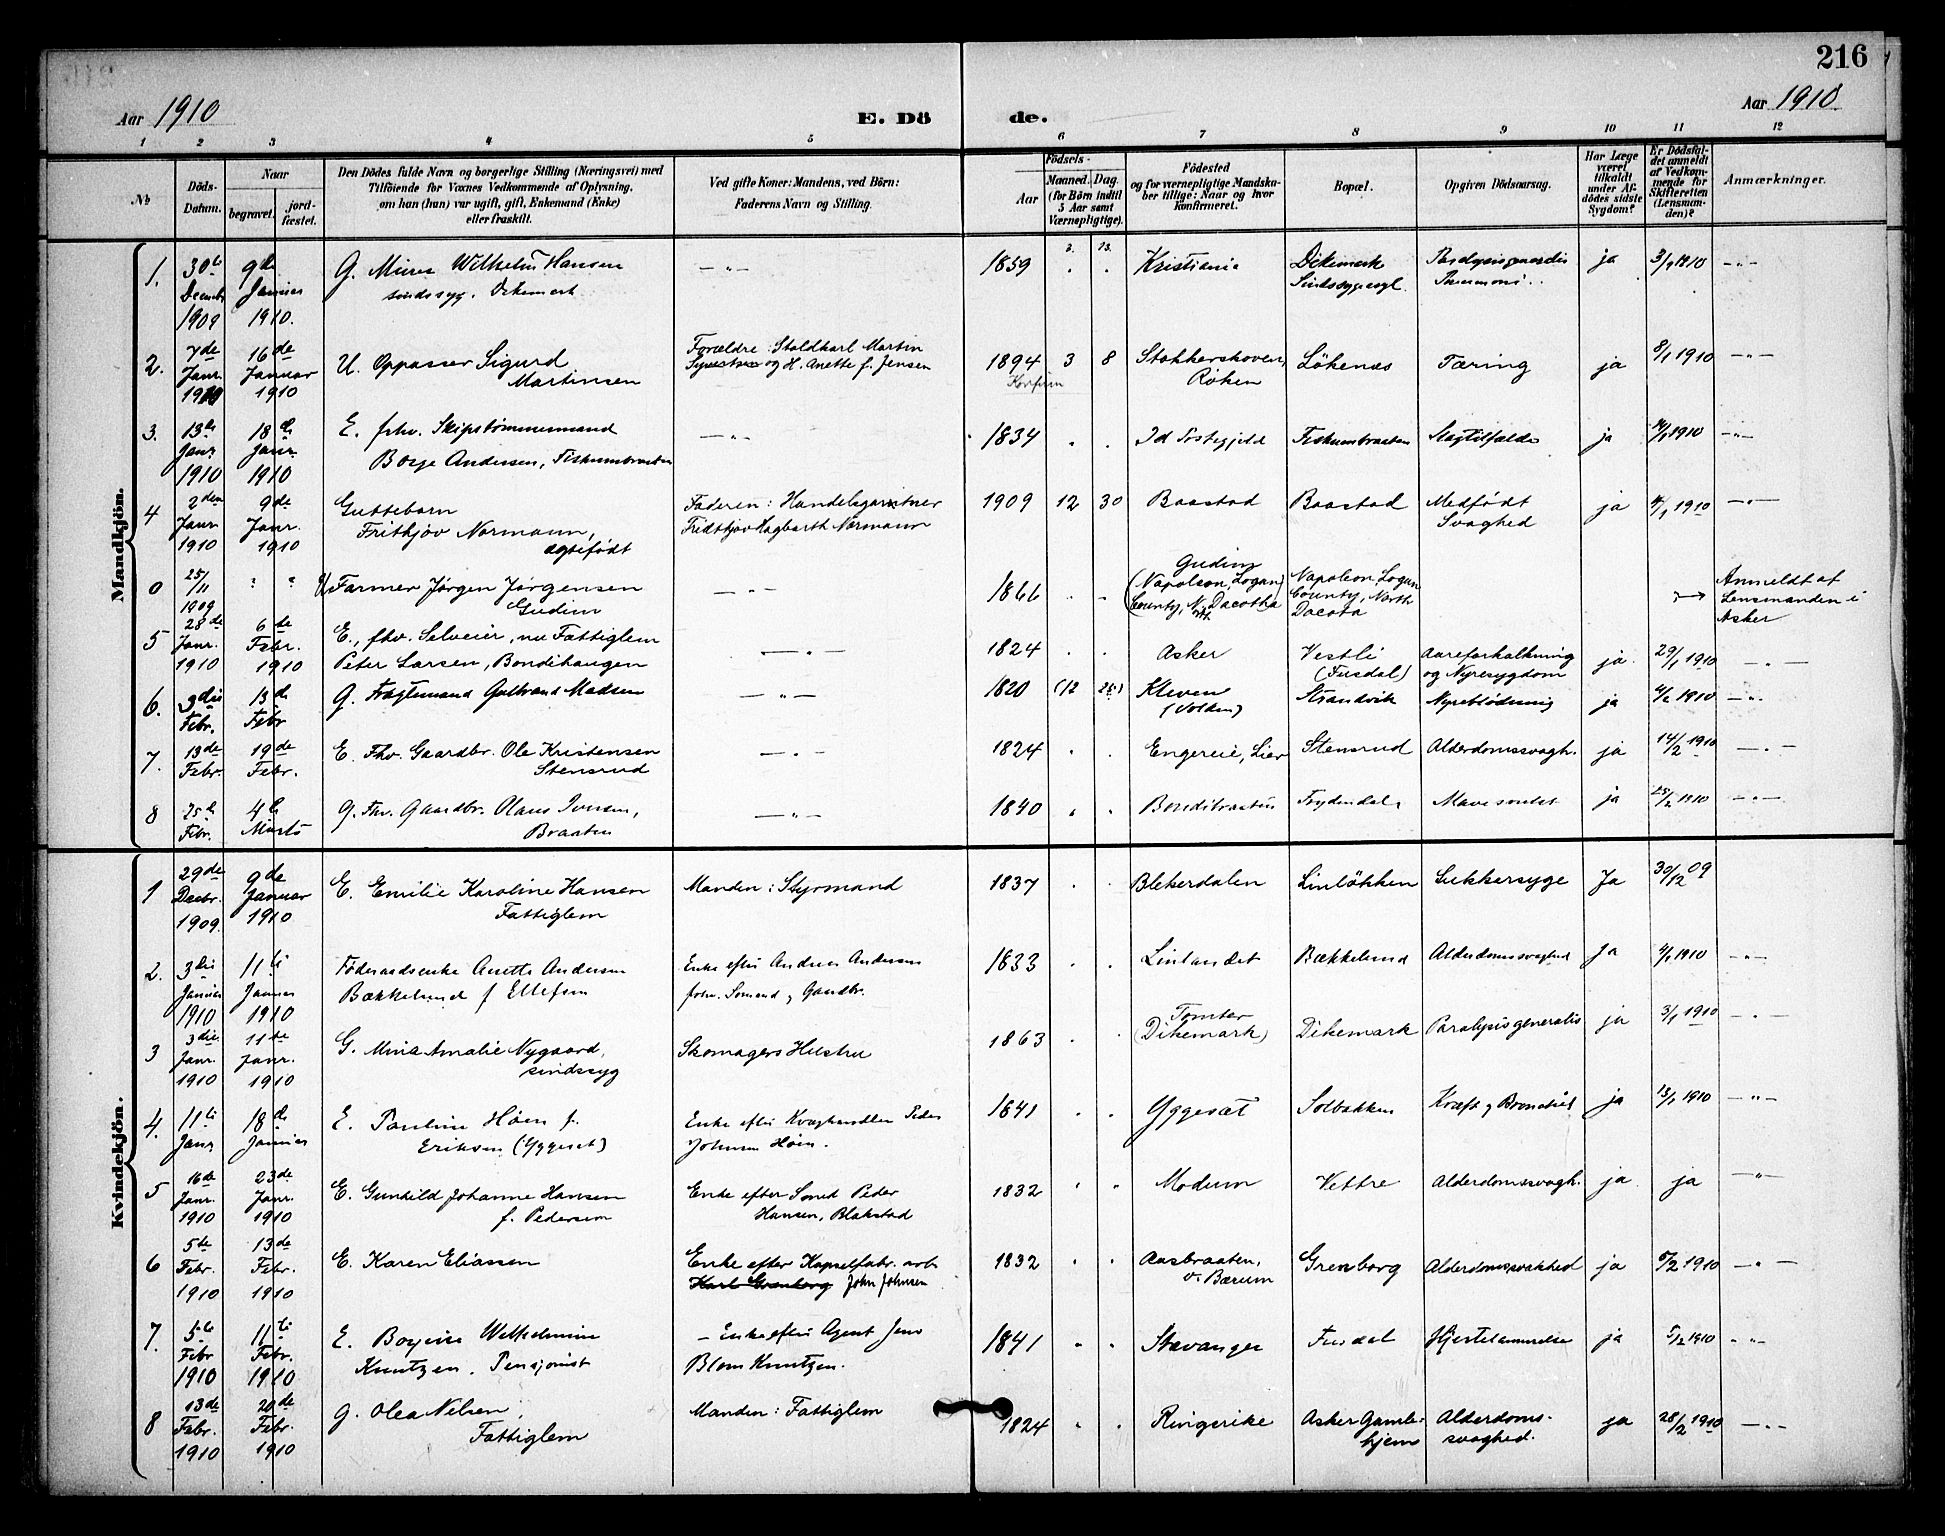 216
Aar 1910
E. Dö
de.
Aar 1910
1 2 3 4 5 6 7 8 9 10 11 12
No
Döds-
Datum.
Naar
begravet.
jord-
fæstet.
Den Dödes fulde Navn og borgerlige Stilling (Næringsvei) med
Tilföiende for Voxnes Vedkommende af Oplysning,
om han (hun) var ugift, gift, Enkemand (Enke)
eller fraskilt.
Ved gifte Koner: Mandens, ved Börn:
Faderens Navn og Stilling.
Födsels-
Aar
Maaned. Dag.
(for Börn indtil
5 Aar samt
Værnepligtige).
Födested
og for værnepligtige Mandska-
ber tillige: Naar og hvor
konfirmeret.
Bopæl.
Opgiven Dödsaarsag.
Har Læge
været
tilkaldt
under Af-
dödes sidste
Sygdom?
Er Dödsfal-
det anmeldt
af Vedkom-
mende for
Skifteretten
(Lensman-
den)?
Anmærkninger.
Mandkjön.
1. 30te 9de G. Wilhelm Hansen — " — 1859 . . Kristiania Dikemark ja 3/1 1910 — " —
Decembr Januar sindssyg. Dikemark Sindssygeasyl.
1909 1910.
2. 7de 16de U. Oppasser Sigurd Forældre: Staldkarl Martin 1894 3 8 Stokkerskoven, Lökenæs Tæring ja 8/1 1910 — " —
Janr. Januar Martinsen og H. Anette f. Jensen Röken
1910 1910
3. 13de 18de E. fhv. Skipstömmermand — " — 1834 . . Id Fiskumbraaten Slagtilfælde ja 14/1 1910 — " —
Janr Janr Borge Andersen, Fiskumbraaten
1910 1910
4 2den 9de Guttebarn Faderen: Handelsgartner 1909 12 30 Baastad Baastad Medfödt ja 4/1 1910 — " —
Janr. Janr. Frithjov Normann, Fridthjov Hagbarth Normann Svaghed
1910 1910 ægtefödt
0 25/11 " " Farmer Jörgen Jörgensen — " — 1866 . . Gudim Napoleon, Logan Anmeldt af
1909 Gudim (Napoleon, Logan County, North Lensmanden i
County, N. Dacotha Dacota Asker
5 28de 6te E., fhv. Selveier, nu Fattiglem — " — 1824 . . Asker Vestli Aareforkalkning ja. 29/1 1910 — " —
Janr. Febr. Peter Larsen, Bondihaugen (Fusdal) og Nyresygdom
1910 1910
6. 3die 13de G. Fragtemand Gulbrand Madsen — " — 1820 (12 26) Kleven Strandvik Nyreblödning ja 4/2 1910 — " —
Febr. Febr (Volden)
7. 13de 19de E. Fhv. Gaardbr. Ole Kristensen — " — 1824 . . Engereie, Lier Stensrud Alderdomssvagh. ja 14/2 1910 — " —
Febr. Febr. Stensrud
8 25de 4de G. Fhv. Gaardbr. Olaus Iversen, — " — 1840 . . Bondibraaten Frydendal Mavesaar ja 25/2 1910 — " —
Febr. Marts Braaten
Kvindekjön.
1 29de 9de E. Emilie Karoline Hansen Manden: Styrmand 1837 . . Blekerdalen Linlökken Sukkersyge Ja 30/12 09
Decbr. Januar Fattiglem
1909. 1910
2. 3die 11te Föderaadsenke Anette Andersen Enke efter Andreas Andersen 1833 . . Linlandet Bækkelund Alderdomssvaghed Ja 4/1 1910 — " —
Januar Januar Bækkelund f Ellefsen forh. Sömand og Gaardbr.
1910 1910
3 3die 11te G. Mina Amalie Nygaard, Skomagers Hustru 1863 . . Tomter Dikemark Paralysis generalis ja 3/1 1910 — " —
Janr. Janr. sindssyg (Dikemark)
1910 1910
4. 11te 18de E. Pauline Höen f. Enke efter Kvæghandler Peder 1841 . . Yggeset Solbakken Kræft og Bronchit ja 13/1 1910 — " —
Janr Januar Eriksen (Yggeset) Johnsen Höen.
5 16de 23de E. Gunhild Johanne Hansen Enke efter Smed Peder 1832 . . Modum Vettre Alderdomssvagh. ja ja — " —
Janr. Janr. f. Pedersen Hansen, Blakstad
1910 1910
6 5te 13de E. Karen Eliassen Enke efter Kapselfabr. arb. 1832 . . Aasbraaten, Grenborg Alderdomssvakhed ja 5/2 1910 — " —
Febr. Febr. Karl Grenborg John Johnsen V. Bærum
1910 1910
7. 5te 11te E. Wilhelmine — Enke efter Agent Jens 1841 . . Stavanger Fusdal Hjertelammelse ja 5/2 1910 — " —
Febr Febr. Knutzen. Pensjonist Blom Knutzen.
1910 1910
8 13de 20de G. Olea Nelsen, Manden: Fattiglem 1824 . . Ringerike Asker Gamle- Alderdoms- ja 28/2 1910 — " —
Febr. Febr. Fattiglem hjem svaghed.
1910 1910